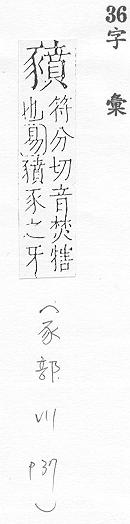 36 字彙
豶
符分切音焚犗
也易豶豕之牙
(豕部 VII P37)